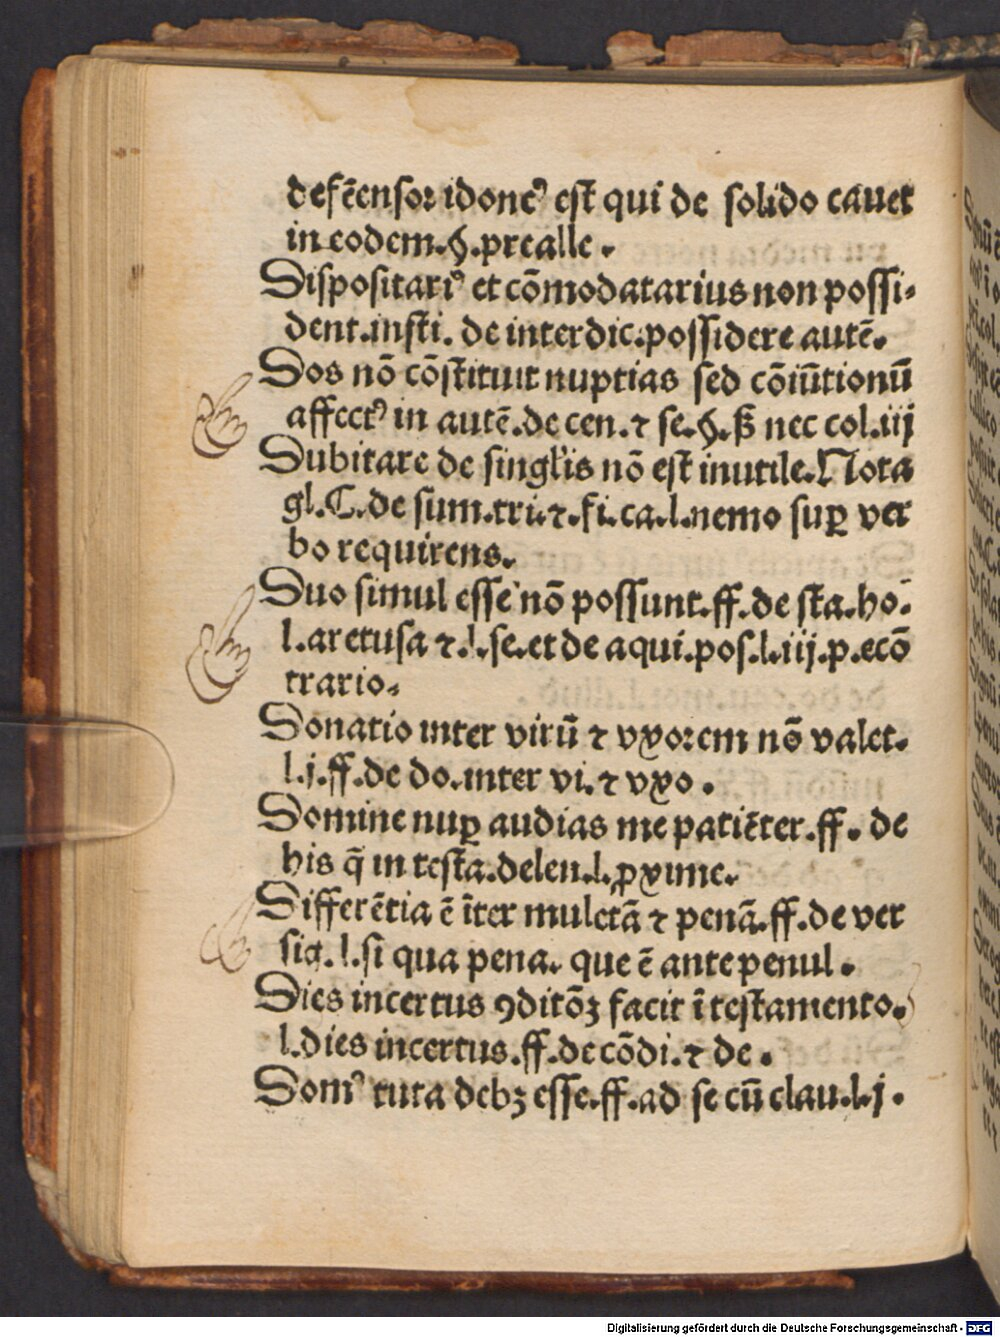 defēensoꝛ idoneꝰ est qui de solido cauet
in eodem.§.prealle.
Dispositariꝰ et cōmodatarius non possi-
dent.insti. de interdic.possidere autē.
Dos nō cōstituit nuptias sed cōiūtionū
affectꝰ in autē.de cen.⁊ se.§.ß nec col.iij
Dubitare de singl'is nō est inutile.Nota
gl.C.de sum.tri.⁊.fi.ca.l.nemo suꝑ ver
bo requirens.
Duo simul esse nō possunt.ff.de sta.ho.
l.aretusa ⁊.l.se.et de aqui.pos.l.iij.p.ecō
trario.
Donatio inter virū ⁊ vxoꝛem nō valet.
l.j.ff.de do.inter vi.⁊ vxo.
Domine nuꝑ audias me patiēter.ff. de
his q̄ in testa.delen.l.ꝓxime.
Differētia ē īter muletā ⁊ penā.ff.de ver
sig.l.si qua pena. que ē antepenul.
Dies incertus ꝯditōꝫ facit ī testamento.
l.dies incertus.ff.de cōdi.⁊ de.
Domꝰ tuta debꝫ esse.ff.ad se cū clau.l.j.
Digitalisierung gefördert durch die Deutsche Forschungsgemeinschaft - DFG